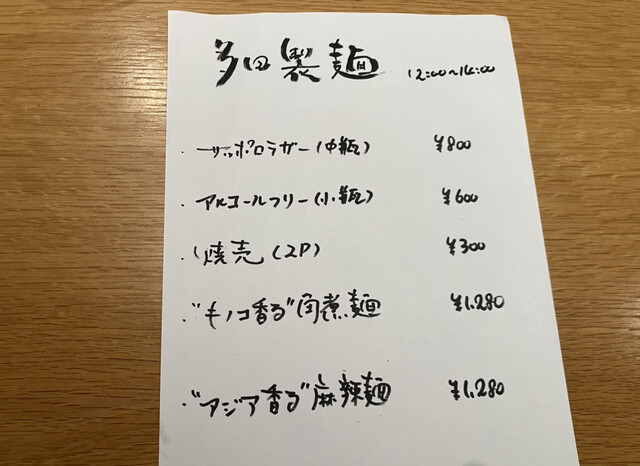 多田製麺 12:00~14:00
・サッポロラガー(中瓶) ¥800
・アルコールフリー(小瓶) ¥600
・焼売(2P) ¥300
・"キノコ香る"角煮麺 ¥1,280
・"アジア香る"麻辣麺 ¥1,280